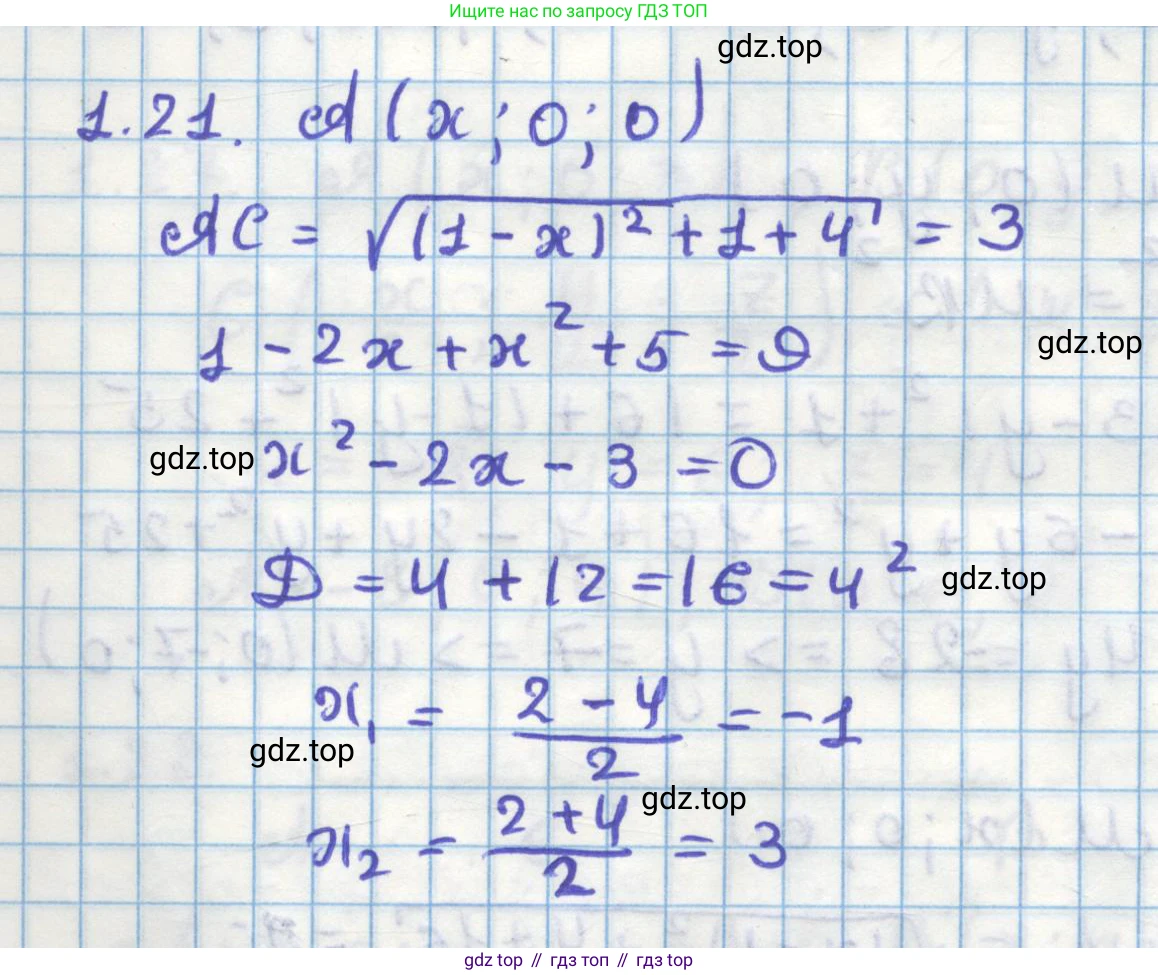 Ищите нас по запросу ГДЗ ТОП
gdz.top
1.21. A(x; 0; 0)
AC = √((1 - x)² + 1 + 4) = 3
1 - 2x + x² + 5 = 9
gdz.top
gdz.top
x² - 2x - 3 = 0
D = 4 + 12 = 16 = 4²
gdz.top
x₁ = (2 - 4)/2 = -1
gdz.top
gdz.top
x₂ = (2 + 4)/2 = 3
gdz top // гдз топ // гдз top